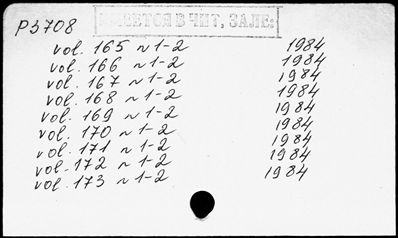 P3708
ИМЕЕТСЯ В ЧИТ. ЗАЛЕ:
vol. 165 N 1-2 1984
vol. 166 N 1-2 1984
vol. 167 N 1-2 1984
vol. 168 N 1-2 1984
vol. 169 N 1-2 1984
vol. 170 N 1-2 1984
vol. 171 N 1-2 1984
vol. 172 N 1-2 1984
vol. 173 N 1-2 1984